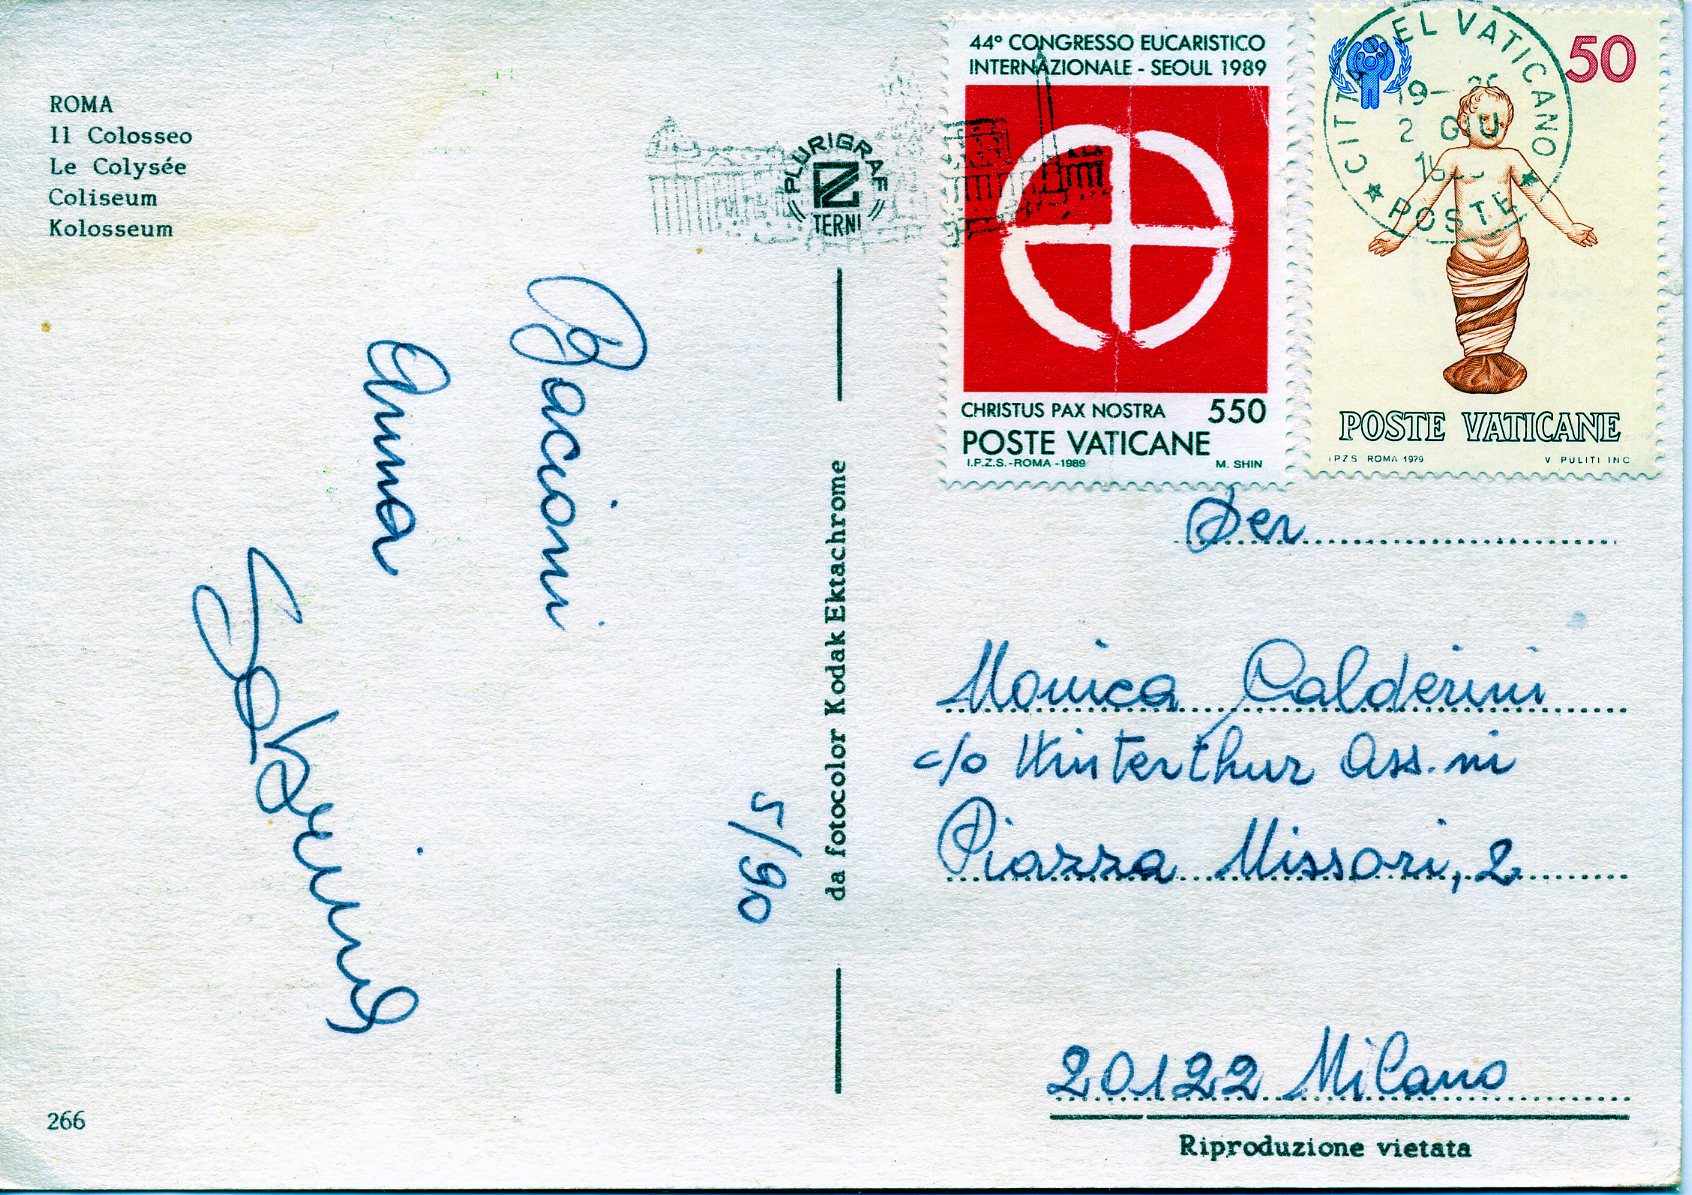 ROMA
Il Colosseo
Le Colysée
Coliseum
Kolosseum
Bacioni
Anna
5/90
266
PLURIGRAF
TERNI
da fotocolor Kodak Ektachrome
44º CONGRESSO EUCARISTICO
INTERNAZIONALE - SEOUL 1989
CHRISTUS PAX NOSTRA 550
POSTE VATICANE
I.P.Z.S.-ROMA-1989 M. SHIN
50
CITTÀ DEL VATICANO
19-
2 GIU
POSTE
POSTE VATICANE
I P Z S ROMA 1979 V PULITI INC
Per
Monica Calderini
c/o Winterthur Ass.ni
Piazza Missori, 2
20122 Milano
Riproduzione vietata